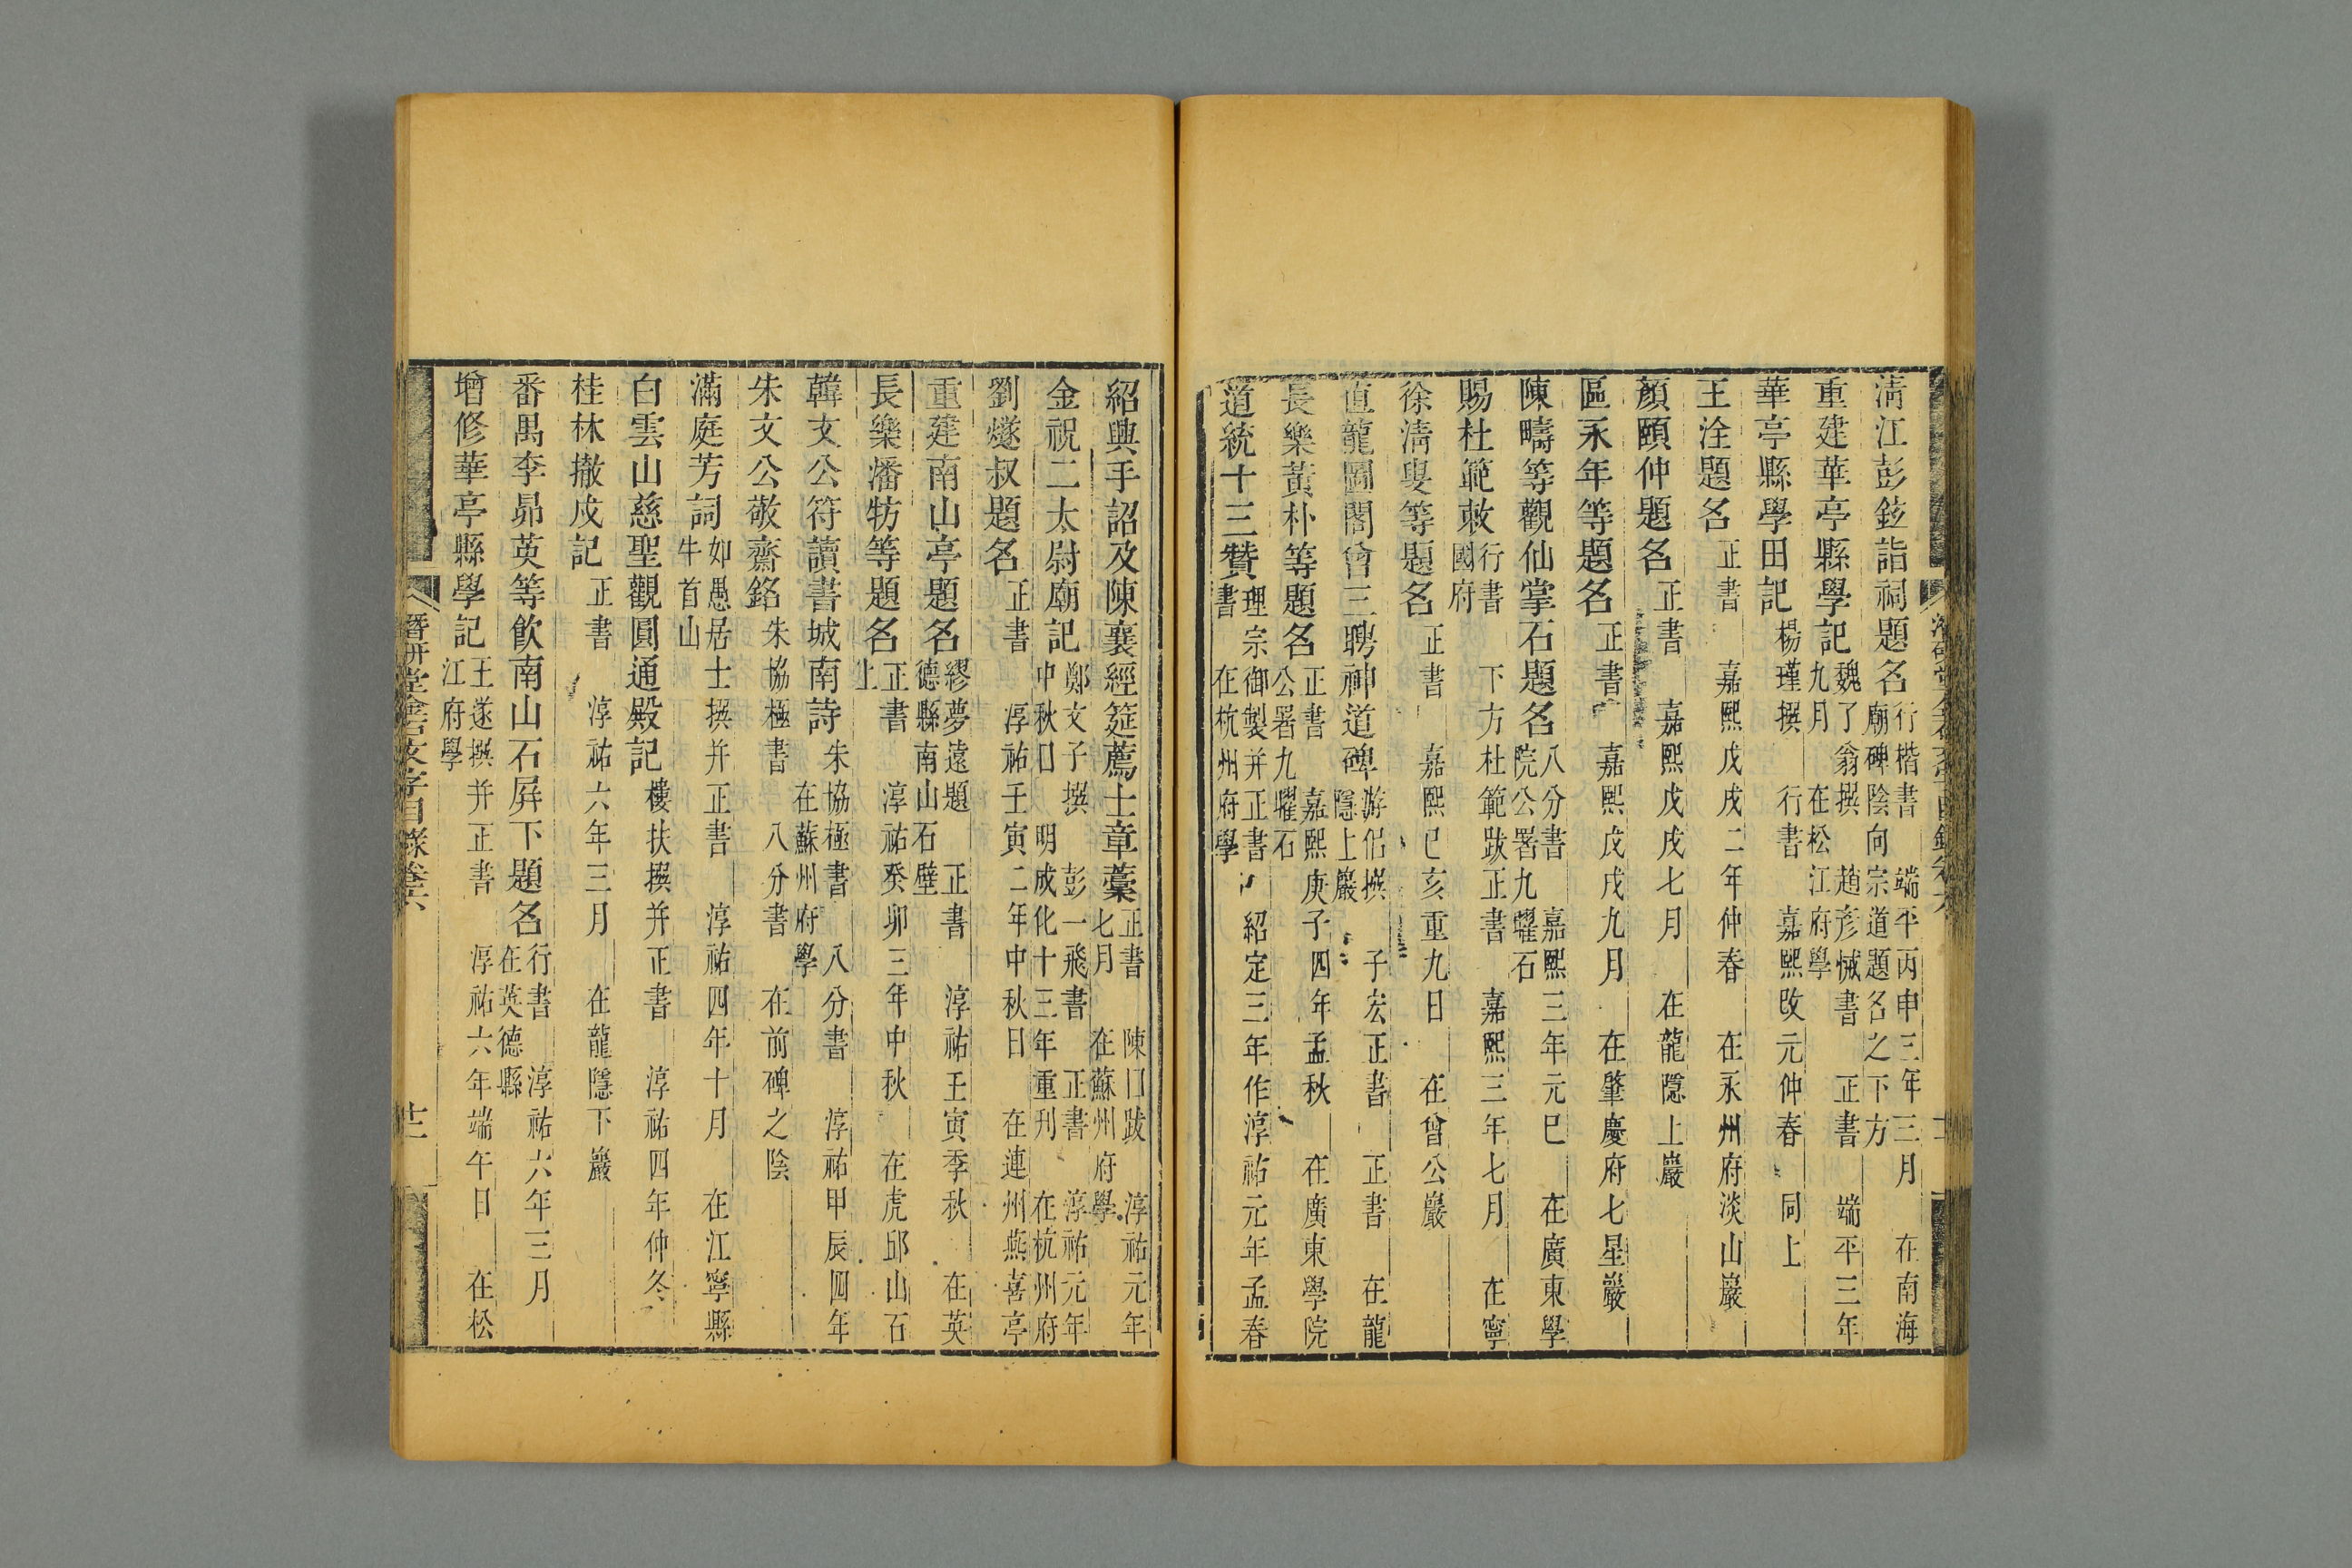 清江彭鉉詣祠題名 行楷書 端平丙申三年三月 在南海廟碑陰向宗道題名之下方
重建華亭縣學記 魏了翁撰 趙彥悈書 正書 端平三年九月 在松江府學
華亭縣學田記 楊瑾撰 行書 嘉熙改元仲春 同上
王淦題名 正書 嘉熙戊戌二年仲春 在永州府淡山巖
顏頤仲題名 正書 嘉熙戊戌七月 在龍隱上巖
區永年等題名 正書 嘉熙戊戌九月 在肇慶府七星巖
陳疇等觀仙掌石題名 八分書 嘉熙三年元巳 在廣東學院公署九曜石
賜杜範敕 行書 下方杜範跋正書 嘉熙三年七月 在寧國府
徐清叟等題名 正書 嘉熙己亥重九日 在曾公巖
直龍圖閣曾三聘神道碑 游侶撰 子宏正書 正書 在龍隱上巖
長樂黃朴等題名 正書 嘉熙庚子四年孟秋 在廣東學院公署九曜石
道統十三贊 理宗御製并正書 紹定三年作淳祐元年孟春書 在杭州府學
紹興手詔及陳襄經筵薦士章藁 正書 陳口跋 淳祐元年七月 在蘇州府學
金祝二太尉廟記 鄭文子撰 彭一飛書 正書 淳祐元年中秋日 明成化十三年重刊 在杭州府
劉燧叔題名 正書 淳祐壬寅二年中秋日 在連州燕喜亭
重建南山亭題名 繆夢遠題 正書 淳祐壬寅季秋 在英德縣南山石壁
長樂潘牥等題名 正書 淳祐癸卯三年中秋 在虎邱山石上
韓文公符讀書城南詩 朱協極書 八分書 淳祐甲辰四年 在蘇州府學
朱文公敬齋銘 朱協極書 八分書 在前碑之陰
滿庭芳詞 如愚居士撰并正書 淳祐四年十月 在江寧縣牛首山
白雲山慈聖觀圓通殿記 樓扶撰并正書 淳祐四年仲冬
桂林撤戍記 正書 淳祐六年三月 在龍隱下巖
番禺李昴英等飲南山石屛下題名 行書 淳祐六年三月 在英德縣
增修華亭縣學記 王遂撰并正書 淳祐六年端午日 在松江府學
潛硏堂金石文字目錄卷六 廿二